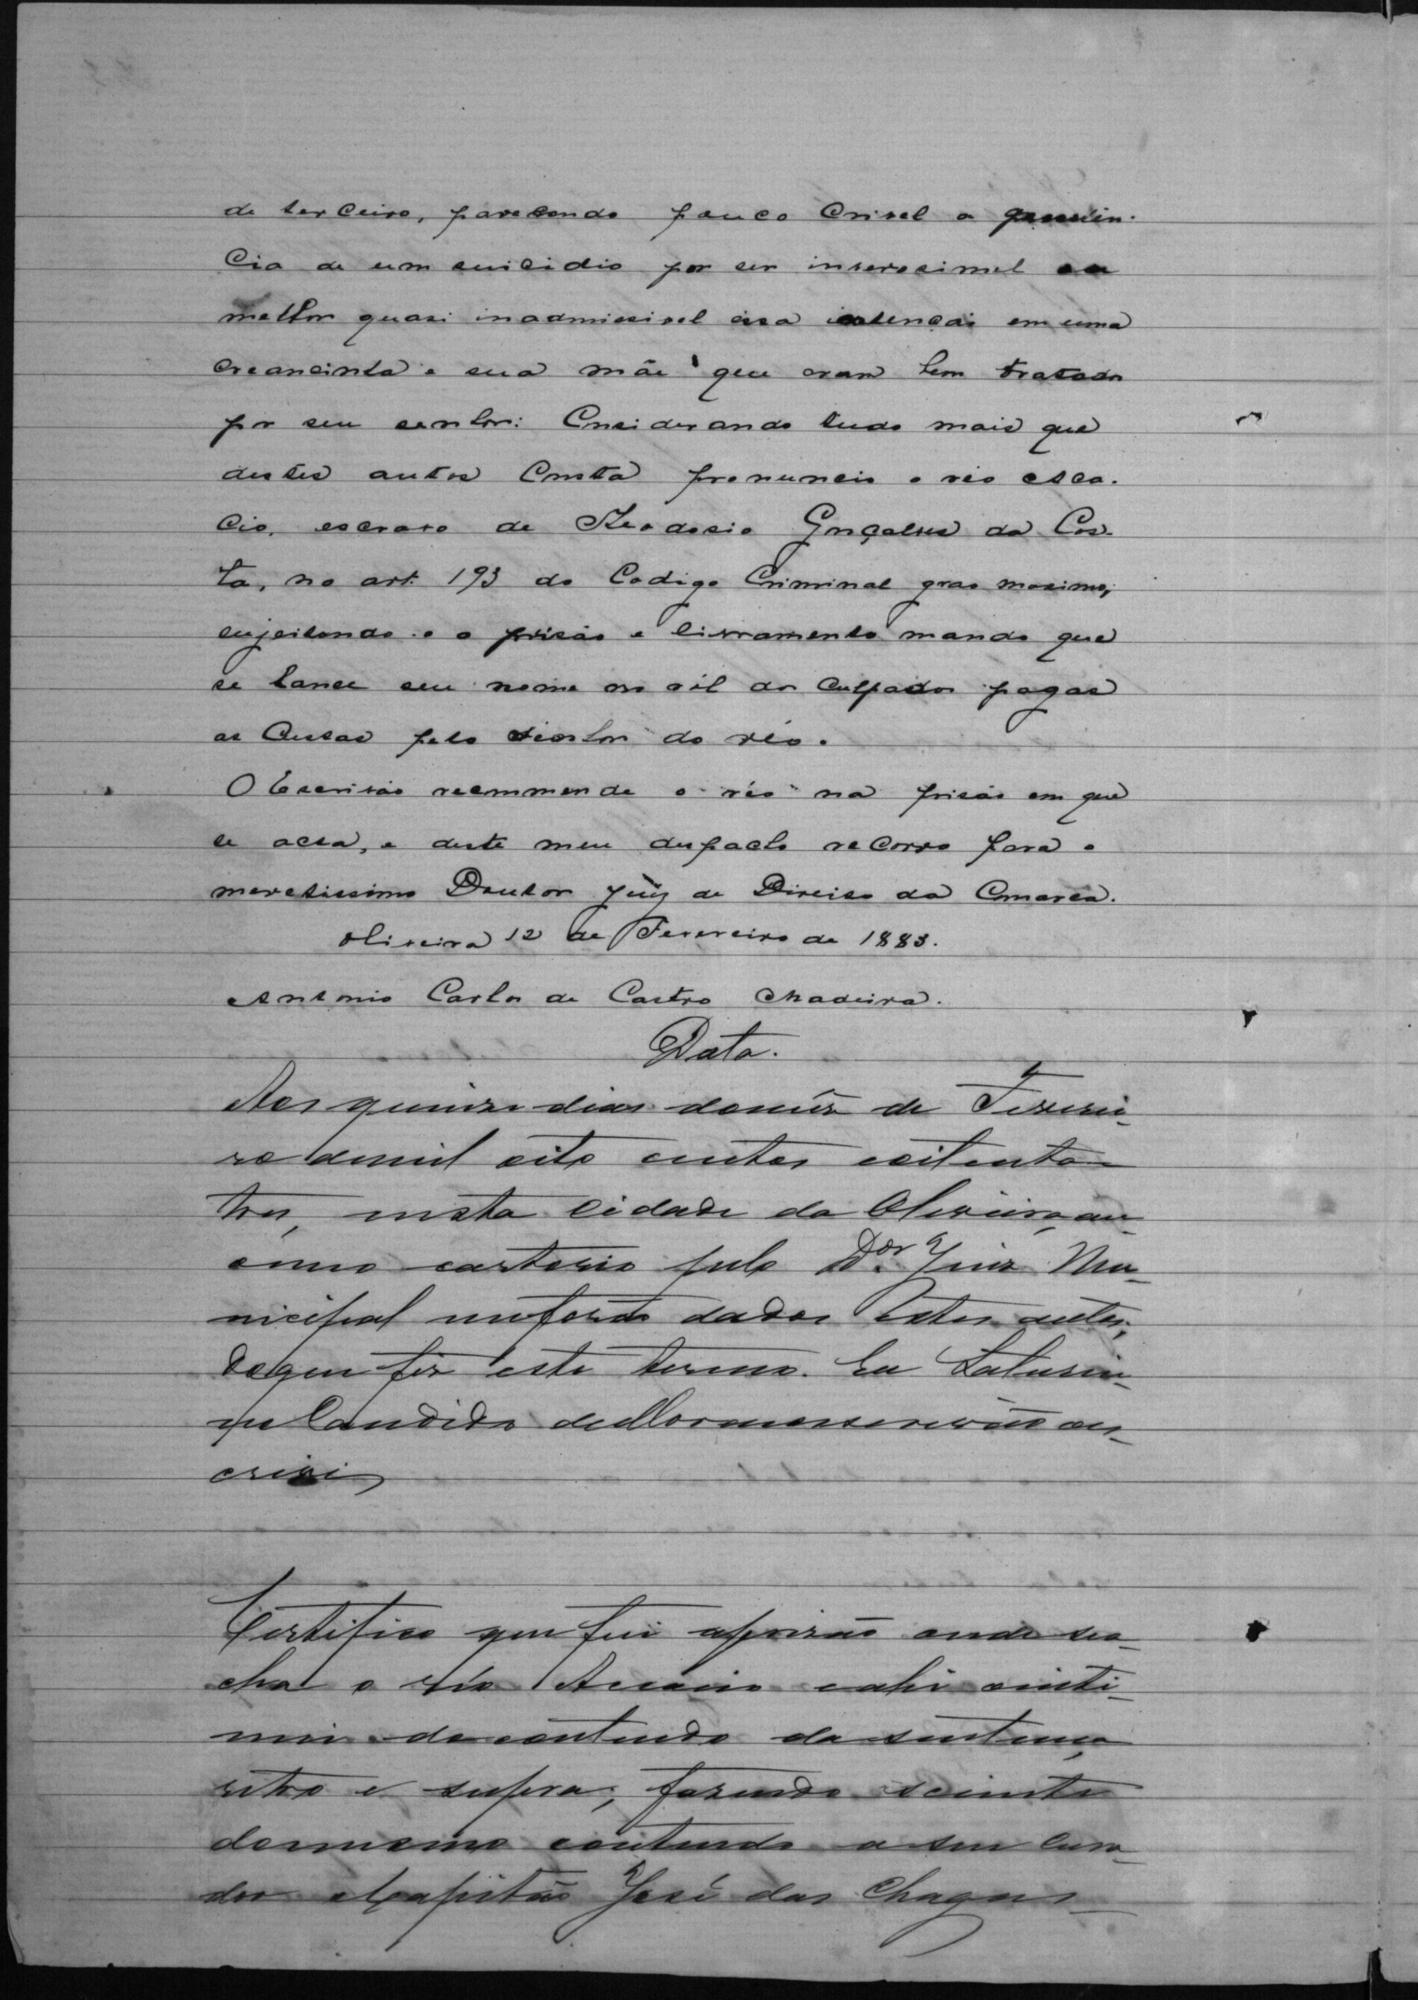 de terceiro, parecendo pouco crivel a
cia de um suicidio por ser inverosimel ou
melhor quasi inadmissivel essa intenção em uma
creancinha e sua mãe que eram bem tratadas
por seu senhor: Considerando tudo mais que
destes autos consta pronuncio o réo Esca-
cio, escravo de Theodosio Gonçalves da Cos-
ta, no art. 193 do Codigo Criminal grao maximo,
sujeitando-o a prisão e livramento mando que
se lance seu nome no ról dos culpados pagas
as custas pelo senhor do réo.
O Escrivão recommende o réo na prisão em que
se acha, e deste meu despacho recorro para o
meretissimo Doutor Juiz de Direito da Comarca.
Oliveira 12 de Fevereiro de 1883.
Antonio Carlos de Castro Madeira.
Data.
Aos quinze dias do mêz de Feverei-
ro de mil oito centos e oitenta e
tres, nesta Cidade da Oliveira, em
o meu cartorio pelo Dor. Juiz Mu-
nicipal me forão dados estes autos;
do que fiz este termo. Eu
Candido de Moraes escrivão o es-
crivi
Certifico que fui a prizão onde se a-
cha o réo e ahi o inti-
mei do contendo da sentença
retro e supra, fazendo sciente
do mesmo contendo a seu Cura-
dor o Capitão José das Chagas